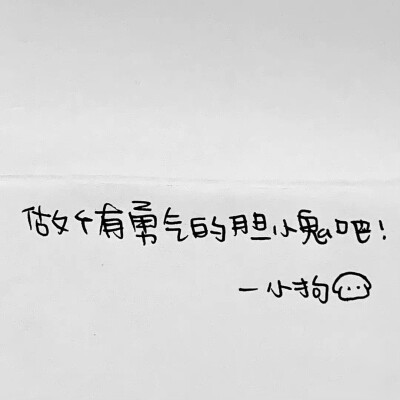 做个有勇气的胆小鬼吧！
—小狗